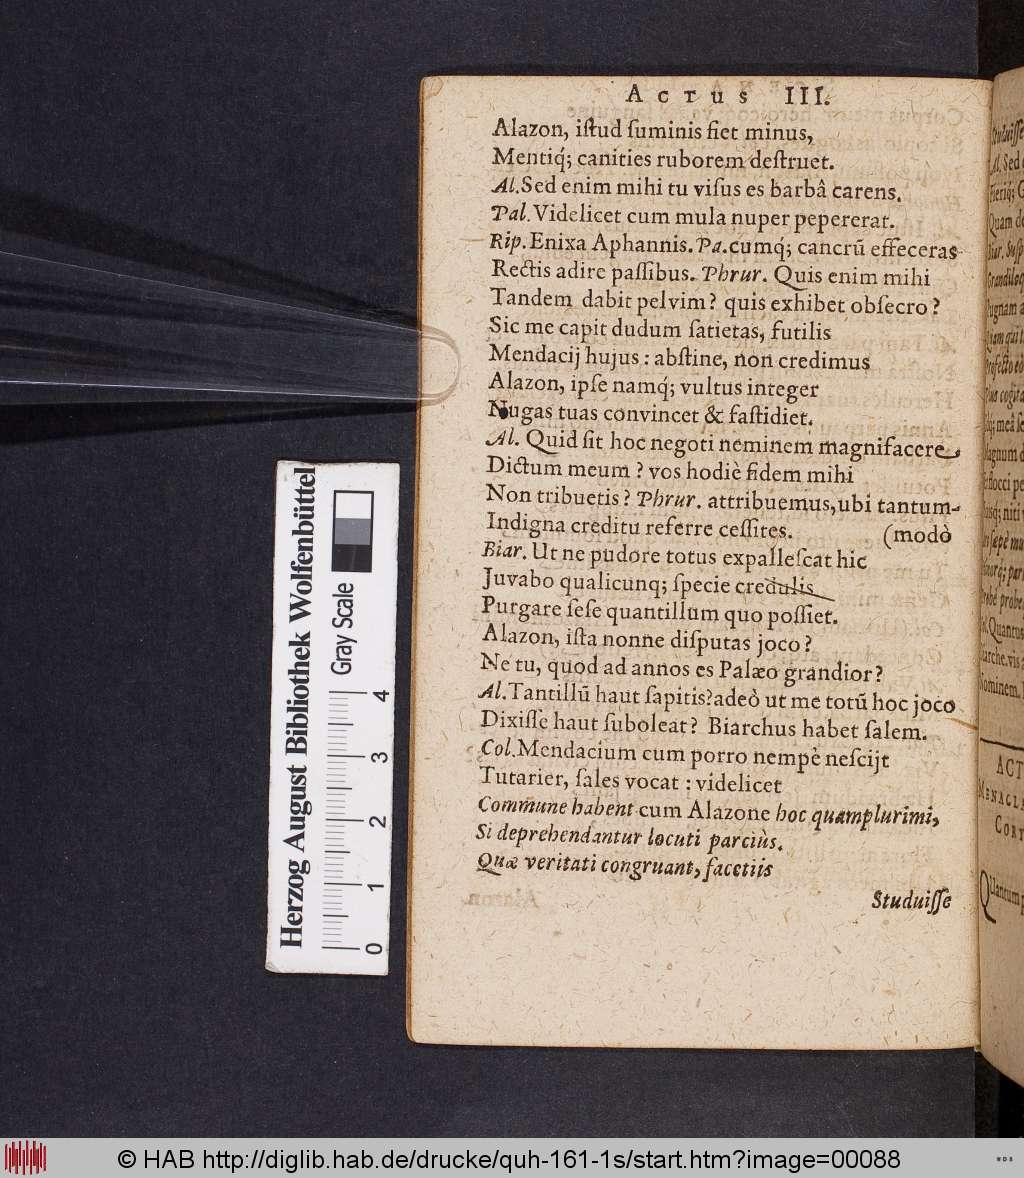 Actus III.
Alazon, iſtud ſuminis fiet minus,
Mentiq́; canities ruborem deſtruet.
Al. Sed enim mihi tu viſus es barbâ carens.
Pal. Videlicet cum mula nuper pepererat.
Rip. Enixa Aphannis. Pa. cumq́; cancrũ effeceras
Rectis adire paſſibus. Phrur. Quis enim mihi
Tandem dabit pelvim? quis exhibet obſecro?
Sic me capit dudum ſatietas, futilis
Mendacij hujus: abſtine, non credimus
Alazon, ipſe namq́; vultus integer
Nugas tuas convincet & faſtidiet.
Al. Quid ſit hoc negoti neminem magnifacere,
Dictum meum? vos hodiè fidem mihi
Non tribuetis? Phrur. attribuemus, ubi tantum-
Indigna creditu referre ceſſites. (modò
Biar. Ut ne pudore totus expalleſcat hic
Juvabo qualicunq; ſpecie credulis
Purgare ſeſe quantillum quo poſſiet.
Alazon, iſta nonne diſputas joco?
Ne tu, quod ad annos es Palæo grandior?
Al. Tantillũ haut ſapitis? adeò ut me totũ hoc joco
Dixiſſe haut ſuboleat? Biarchus habet ſalem.
Col. Mendacium cum porro nempè neſcijt
Tutarier, ſales vocat: videlicet
Commune habent cum Alazone hoc quamplurimi,
Si deprehendantur locuti parciùs.
Quæ veritati congruant, facetiis
Studuiſſe
Herzog August Bibliothek Wolfenbüttel
Gray Scale
0 1 2 3 4
© HAB http://diglib.hab.de/drucke/quh-161-1s/start.htm?image=00088